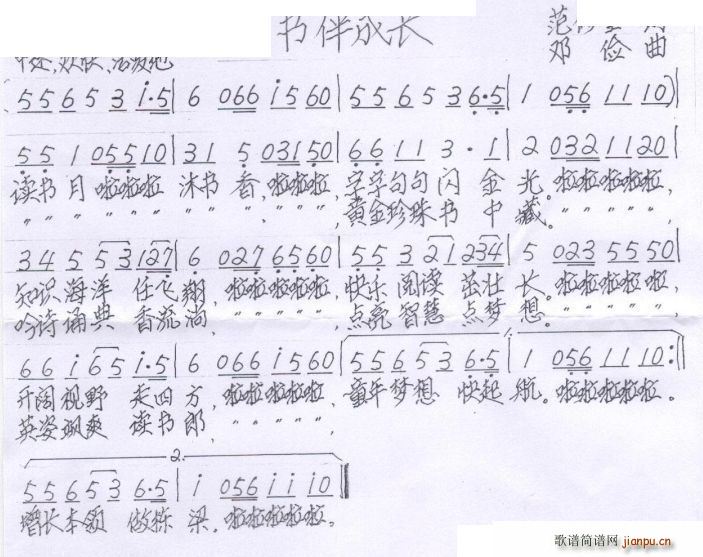 书伴成长
邓 俭 曲
中速,欢快、活泼地
(5 5 6 5 3 i·5| 6 066 i560|5 5 6 5 3 6·5| 1 056 11 10)
5 5 1 05510|31 5 03150|6 6 1 1 3·1|2 0321120|
读书月 啦啦啦 沐书香,啦啦啦,字字句句闪金光。啦啦啦啦啦,
〃〃〃〃〃〃〃〃〃〃〃,黄金珍珠书中藏。〃〃〃〃〃,
3 4 5 53 127|6 0276560|5 5 3 21 234|5 023 5550|
知识海洋任飞翔,啦啦啦啦啦,快乐阅读茁壮长。啦啦啦啦啦,
吟诗诵典香流淌,〃〃〃〃〃,点亮智慧点梦想。〃〃〃〃〃,
1.
6 6 i 65 i·5|6 066 i560|5 5 6 53 6·5|1 056 11 10:||
开阔视野走四方,啦啦啦啦啦,童年梦想快起航。啦啦啦啦啦。
英姿飒爽读书郎,〃〃〃〃〃,
2.
5 5 6 53 6·5|i 056 i i i0||
增长本领做栋梁,啦啦啦啦啦。
歌谱简谱网
jianpu.cn